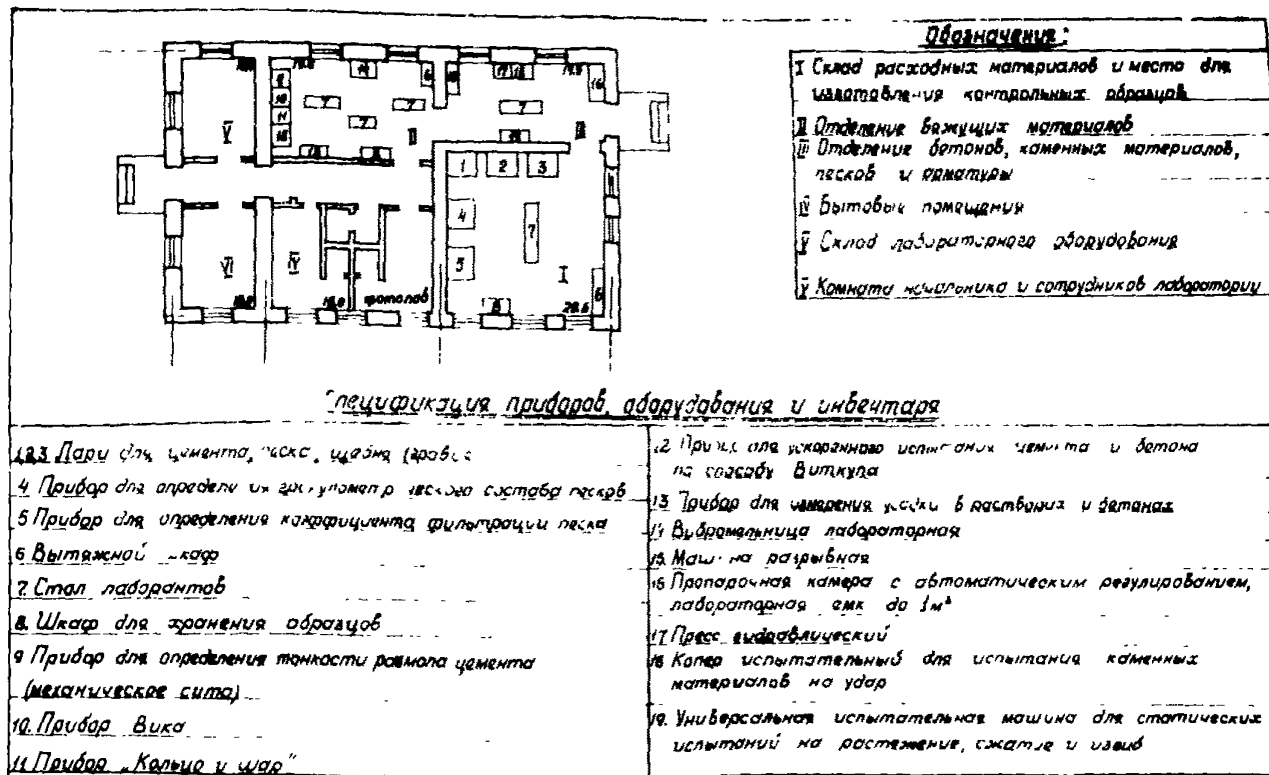 Обозначения:
I Склад расходных материалов и место для
изготовления контрольных образцов
II Отделение вяжущих материалов
III Отделение бетонов, каменных материалов,
песков и арматуры
IV Бытовые помещения
V Склад лабораторного оборудования
V Комната начальника и сотрудников лаборатории
V
II
III
1 2 3
4
7
5
I
VI
IV
фотолаб
8
6
28.6
Спецификация приборов, оборудования и инвентаря
1,2,3 Лари для цемента, песка, щебня
4 Прибор для определения гранулометрического состава песков
5 Прибор для определения коэффициента фильтрации песка
6 Вытяжной шкаф
7. Стол лаборантов
8. Шкаф для хранения образцов
9 Прибор для определения тонкости размола цемента
(механическое сито)
10. Прибор Вика
11 Прибор „Кольцо и шар"
12 для ускоренного испытания цемента и бетона
по способу
13 Прибор для измерения усадки в растворах и бетонах
14 Вибромельница лабораторная
15. Машина разрывная
16 Пропарочная камера с автоматическим регулированием,
лабораторная емк до 1м³
17 Пресс гидравлический
18 Копер испытательный для испытания каменных
материалов на удар
19. Универсальная испытательная машина для статических
испытаний на растяжение, сжатие и изгиб